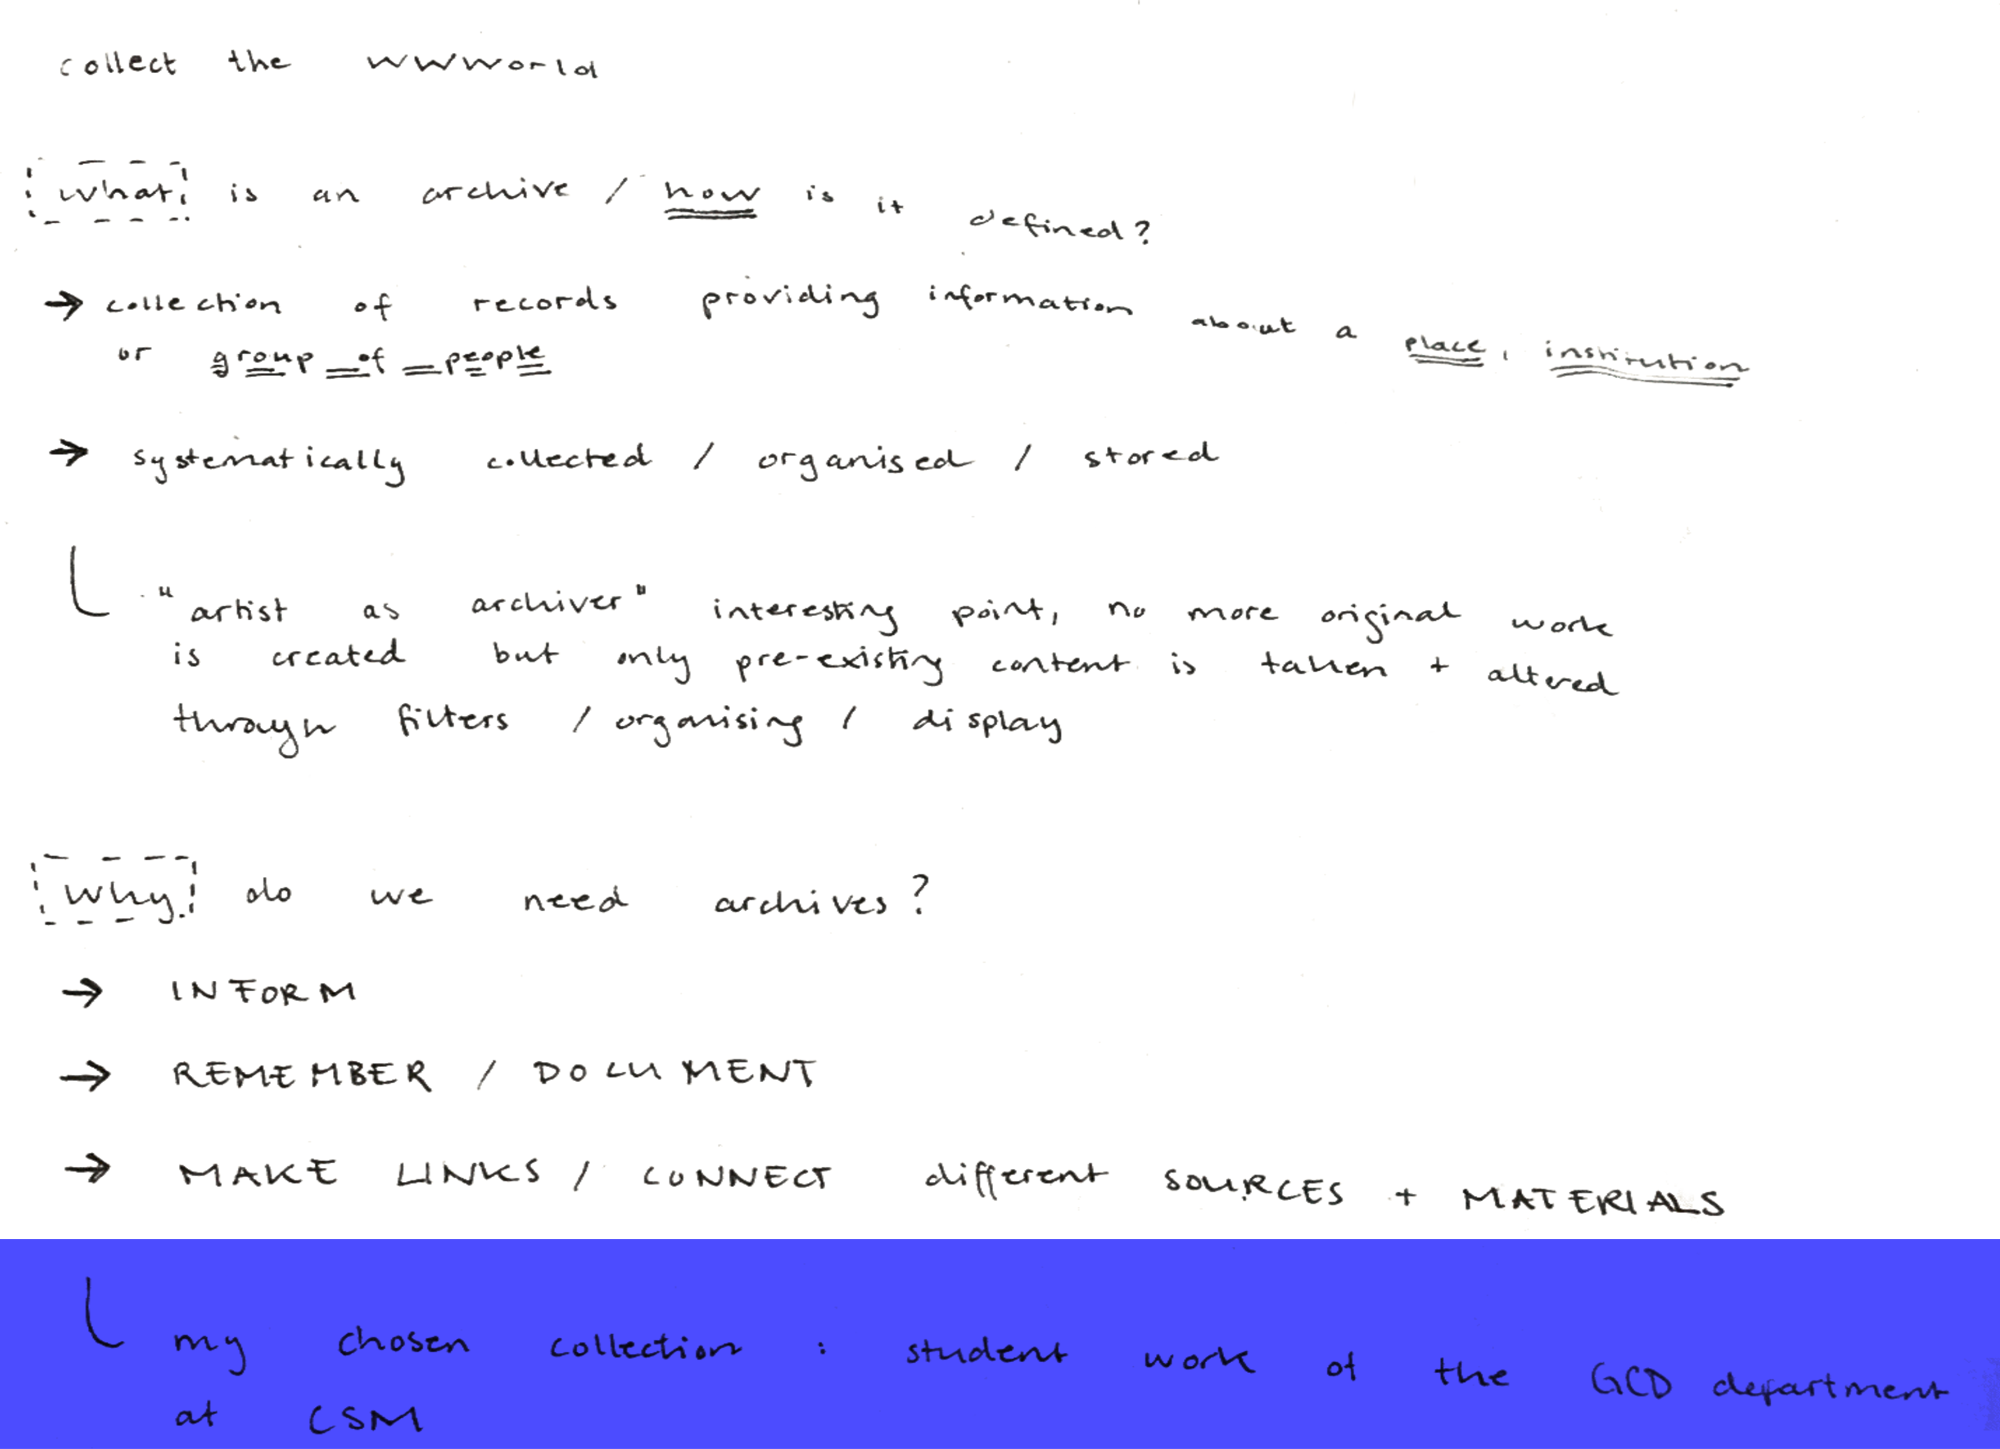 collect the wwworld
what is an archive / how is it defined?
→ collection of records providing information about a place, institution
or group of people
→ systematically collected / organised / stored
"artist as archiver" interesting point, no more original work
is created but only pre-existing content is taken + altered
through filters / organising / display
why do we need archives?
→ INFORM
→ REMEMBER / DOCUMENT
→ MAKE LINKS / CONNECT different SOURCES + MATERIALS
my chosen collection : student work of the GCD department
at CSM